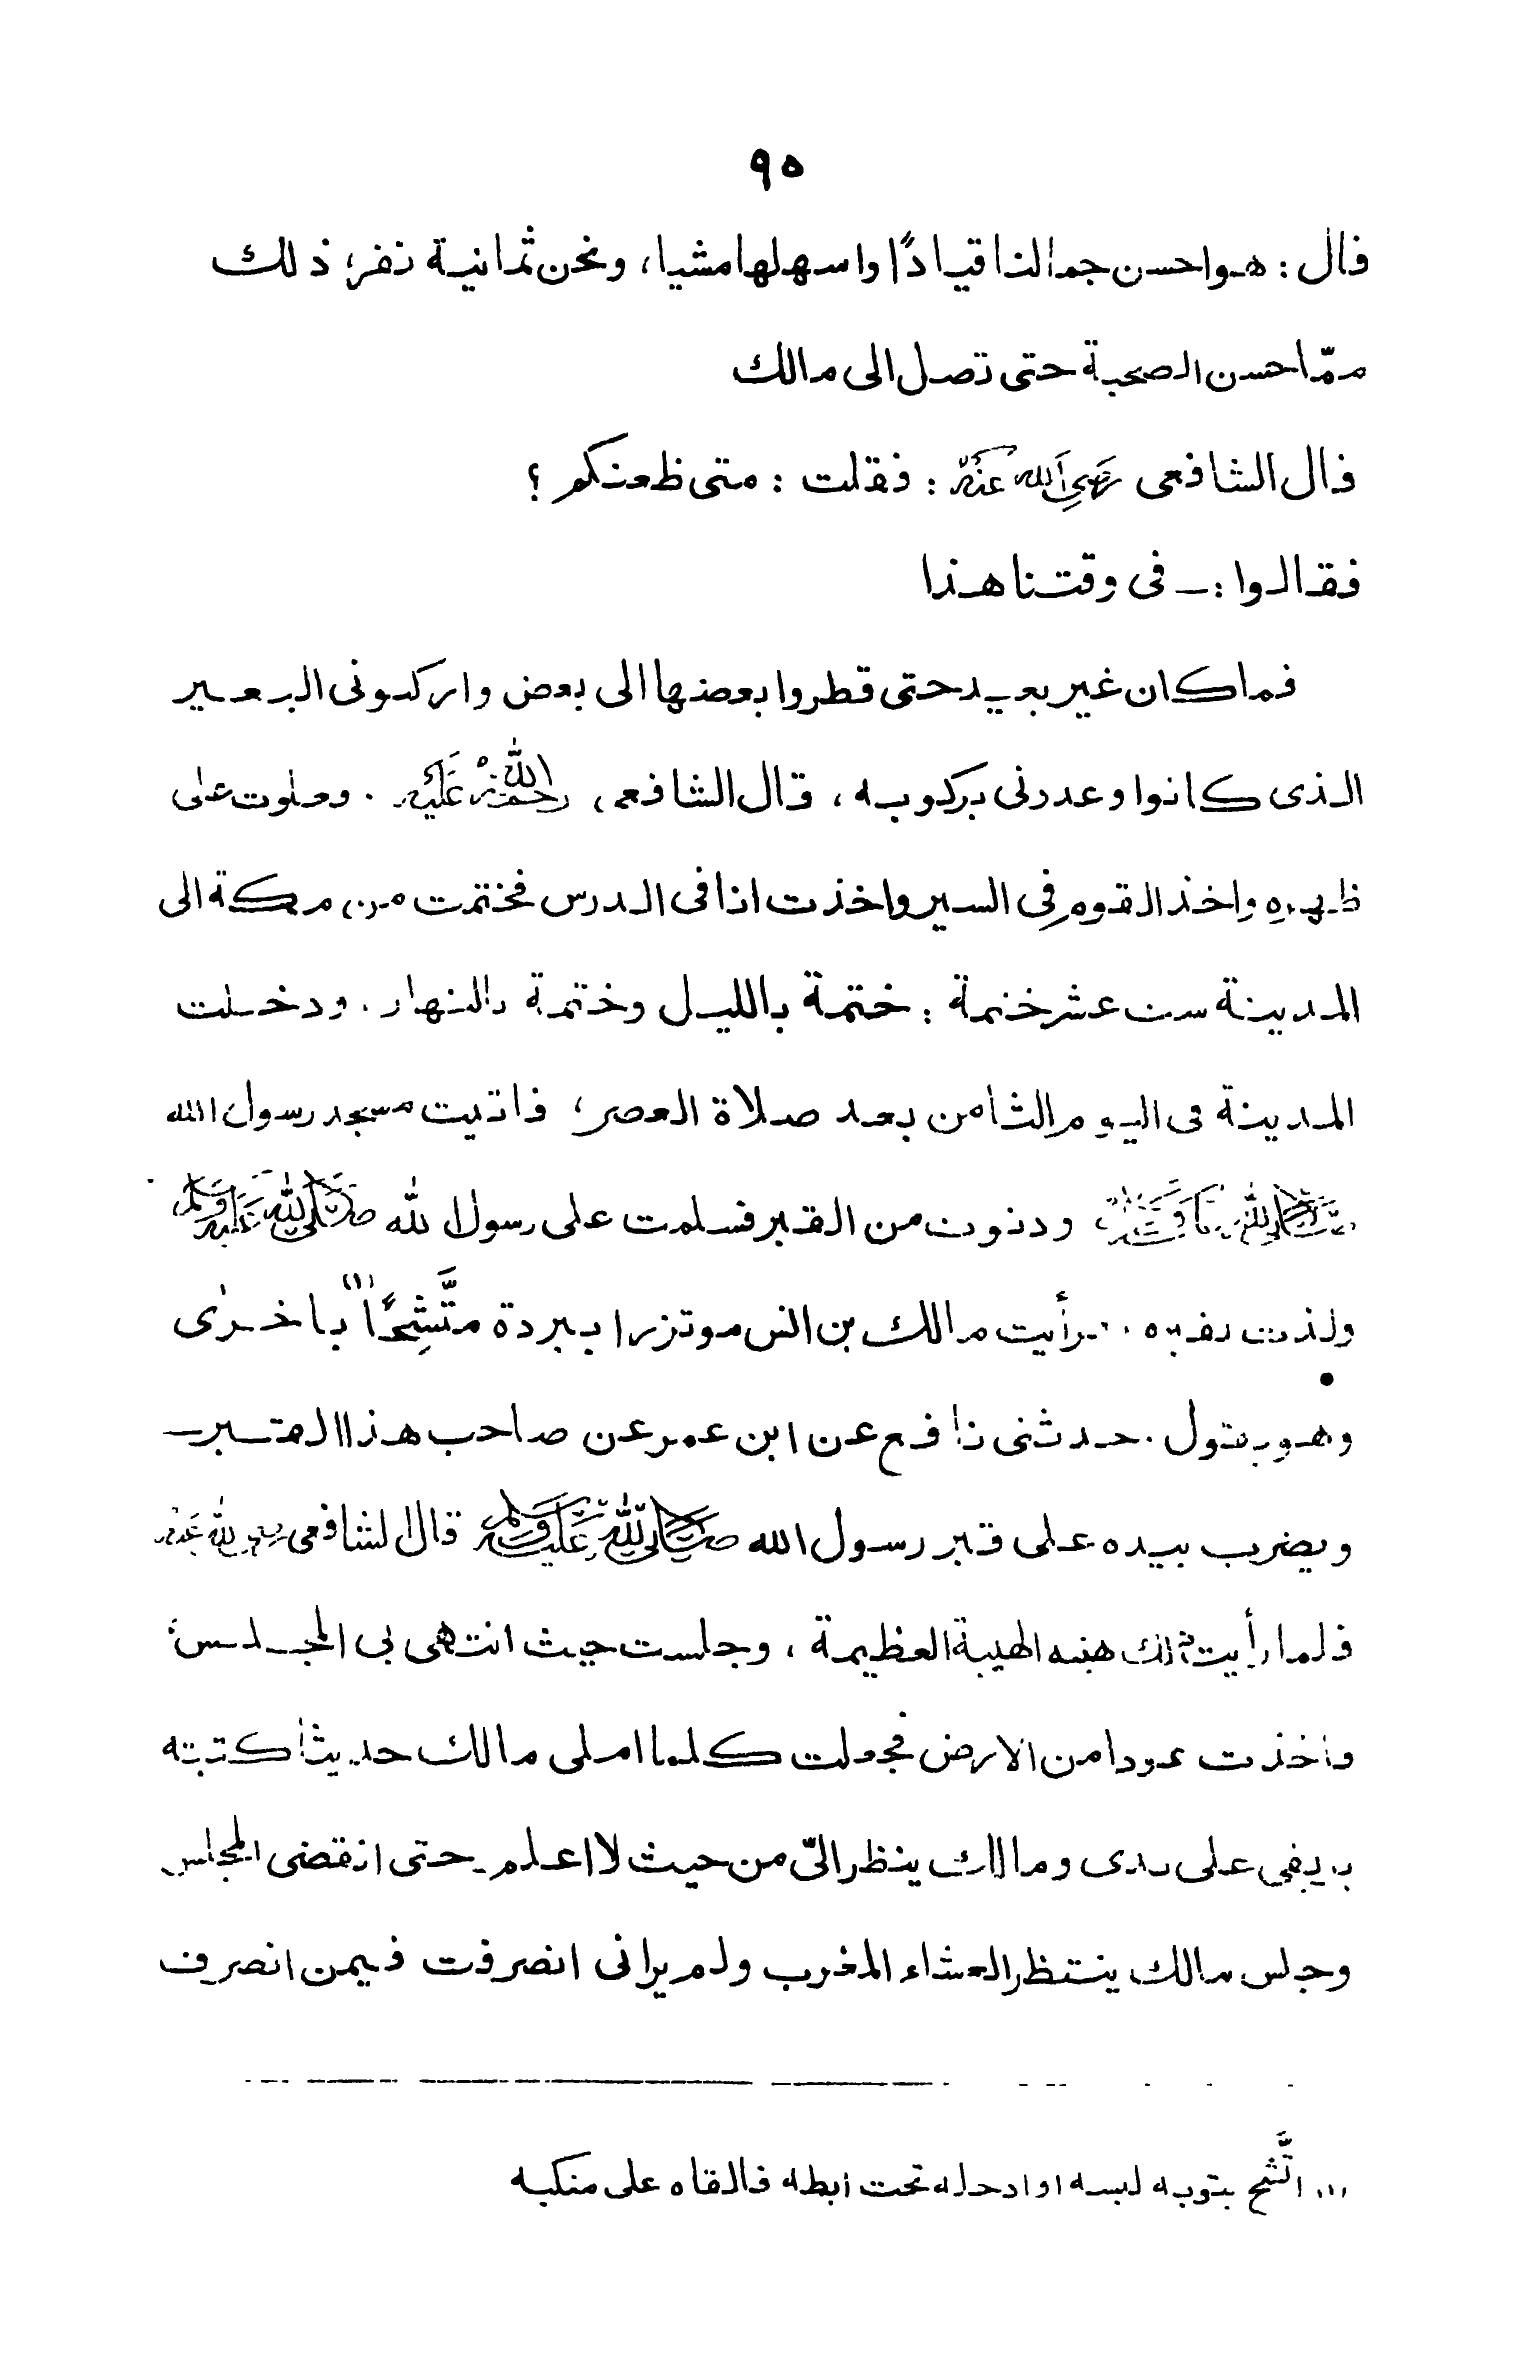 ٩٥
قال : هو احسن جمالنا قيادًا واسهلها مشيا، ونحن ثمانية نفر، ذلك
ممّا حسن الصحبة حتى تصل الى مالك
قال الشافعى رضي الله عنه : فقلت : متى ظعنكم ؟
فقالوا :ـ فى وقتنا هذا
فما كان غير بعيد حتى قطروا بعضها الى بعض واركبونى البعير
الذى كانوا وعدونى بركوبه ، قال الشافعى ، رحمة الله عليه . وعلوت على
ظهره واخذ القوم فى السير واخذت انا فى الدرس فختمت من مكة الى
المدينة ست عشر ختمة : ختمة بالليل وختمة بالنهار . ودخلت
المدينة فى اليوم الثامن بعد صلاة العصر، فاتيت مسجد رسول الله
ودنوت من القبر فسلمت على رسول الله صلى الله عليه وسلم
ولذت بقبره . فرأيت مالك بن انس موتزرا ببردة متَّشِحًا (١) باخرى
وهو يقول . حدثنى نافع عن ابن عمر عن صاحب هذا القبر
ويضرب بيده على قبر رسول الله صلى الله عليه وسلم قال الشافعى رضي الله عنه
فلما رأيت ذلك هبته الهيبة العظيمة ، وجلست حيث انتهى بى المجلس
واخذت عودا من الارض فجعلت كلما املى مالك حديثا كتبته
بريقى على يدى ومالك ينظر الىّ من حيث لا اعلم حتى انقضى المجلس
وجلس مالك ينتظر العشاء المغرب ولم يرانى انصرفت فيمن انصرف
(١) اتَّشح بثوبه لبسه او ادخله تحت ابطه فالقاه على منكبه